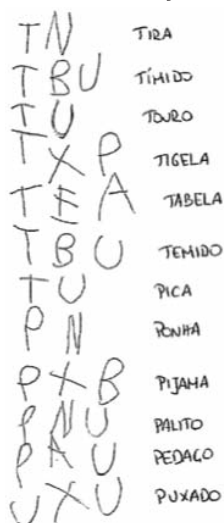 TN TIRA
TBU TÍMIDO
TU TOURO
TXP TIGELA
TEA TABELA
TBU TEMIDO
TU PICA
PN PONHA
PXB PIJAMA
PNU PALITO
PAU PEDAÇO
UXU PUXADO